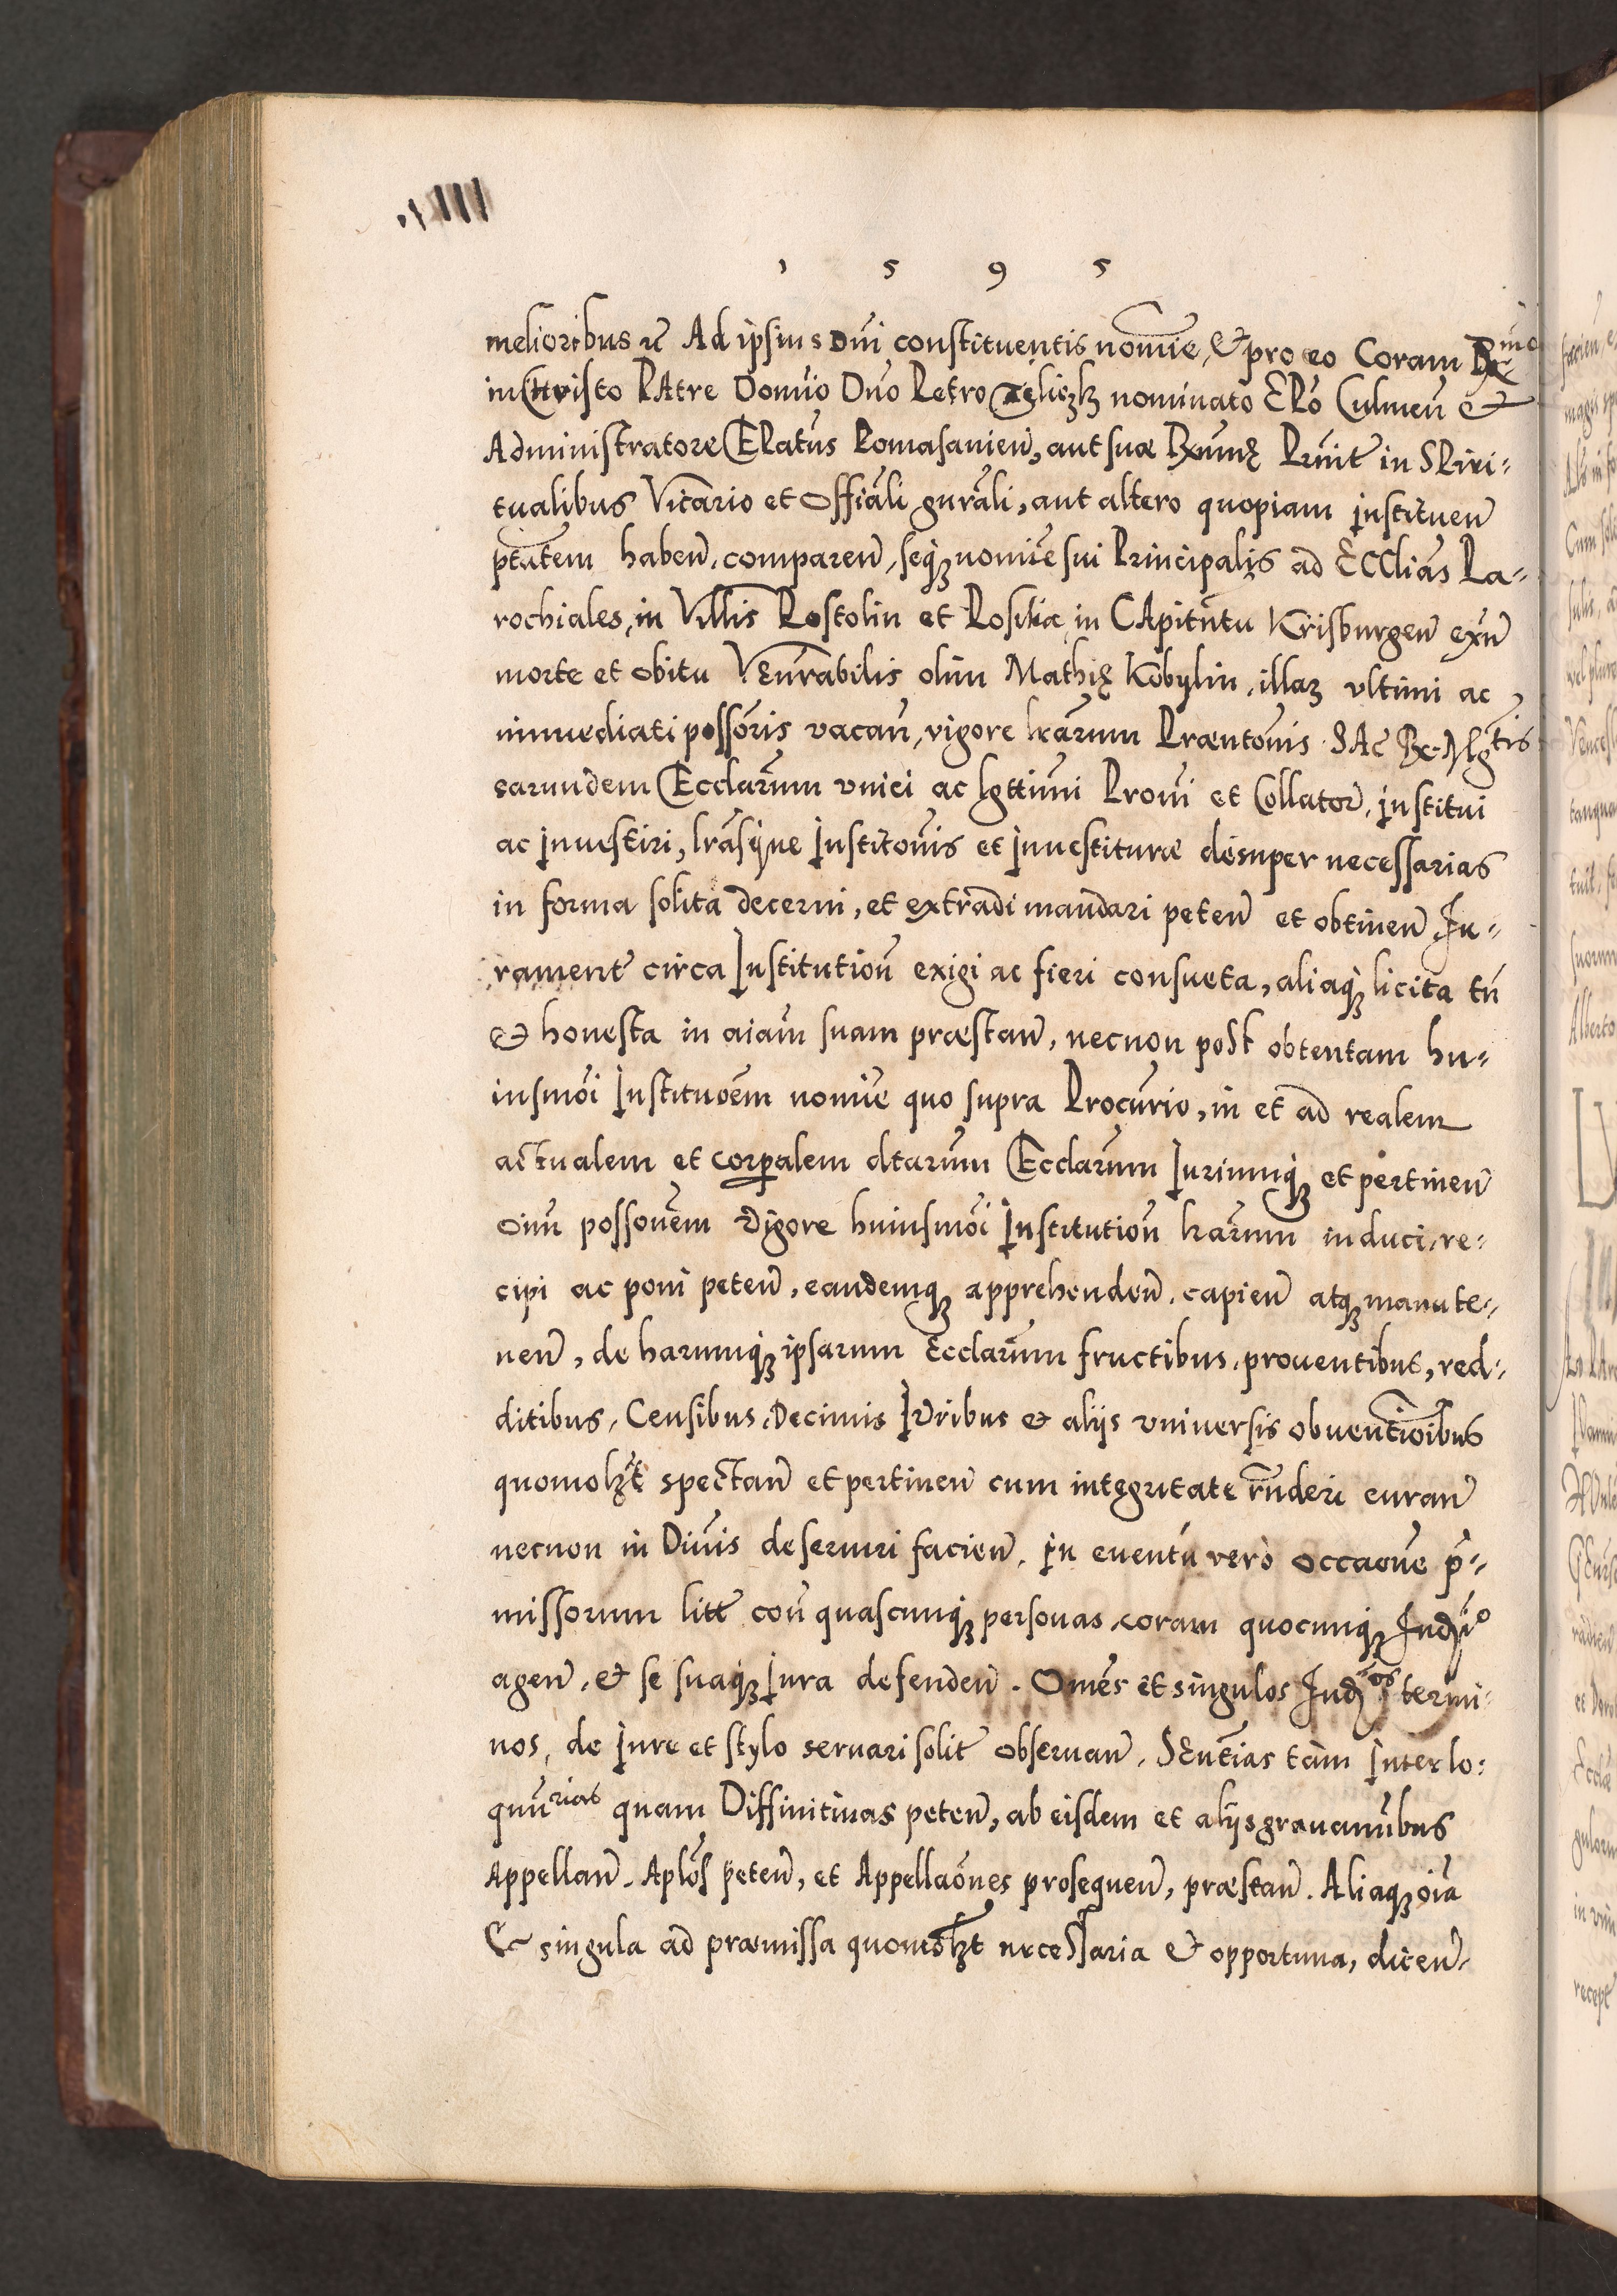 1 5 9 5
melioribus etc̃ Ad ipsius Dñi constituentis nomie, & pro eo Coram Rx̃mo
in Christo PAtre Domĩo Dño Petro nominato EPõ Culmeñ &
Administratore EPatus Pomasanieñ, aut suæ Rx̃imę Pñnit̃ in SPiri-
tualibus Vicario et Offiãli gñrãli, aut altero quopiam instituen̄
ptãtem haben̄, comparen̄, seq̃ nomĩe sui Principalis ad ECCliãs Pa-
rochiales, in Villis Postolin et Posilia, in CApitñtu Krisburgen̄ ex̃n̄
morte et obitu VEnr̃abilis olim Mathię Kobylin, illaꝝ vltimi ac
immediati possõris vacan̄, vigore lrãrum Præntõnis SAC Rx. Mgtis
earundem Ecclãrum vnici ac lgttimi Prõni et Collator̃, institui
ac inuestiri, lrãsque Institõnis et inuestituræ desuper necessarias
in forma solita decerni, et extradi mandari peten̄ et obtinen̄ Ju-
rament̃ circa Institution̄ exigi ac fieri consueta, aliaq̃ licita tñ
& honesta in aĩam suam præstan̄, necnon post obtentam hu-
iusmõi Institũõem nomĩe quo supra Procurĩo, in et ad realem
actualem et corpalem dtarum Ecclãrum Iuriumq̃ et pertinen̄
oĩm possõnem vigore huiusmõi Institution̄ lrãrum induci, re-
cipi ac poni peten̄, eandemq̃ apprehenden̄, capien̄ atq̃ manute-
nen̄, de harumq̃ ipsarum Ecclãrum fructibus, prouentibus, red-
ditibus, Censibus, Decimis IVribus & alijs vniuersis obuentiõibus
quomolꝫt spectan̄ et pertinen̄ cum integritate r̃nderi curan̄
necnon in Diuĩs deseruiri facien̄. in euentu verò occaõne p̃-
missorum litt̃ coñ quascunq̃ personas, coram quocunq̃ Judio
agen̄, & se suaq̃ Iura defenden̄. Omẽs et singulos Judios termi-
nos, de Iure et stylo seruari solit̃ obseruan̄. SEntẽias tam Interlo-
quñrias quam Diffinitiuas peten̄, ab eisdem et alijs grauamĩbus
Appellan̄. Aplõs peten̄, et Appellaõnes prosequen̄, præstan̄. Aliaq̃ oĩa
& singula ad præmissa quomõlꝫt necessaria & opportuna, dicen̄,